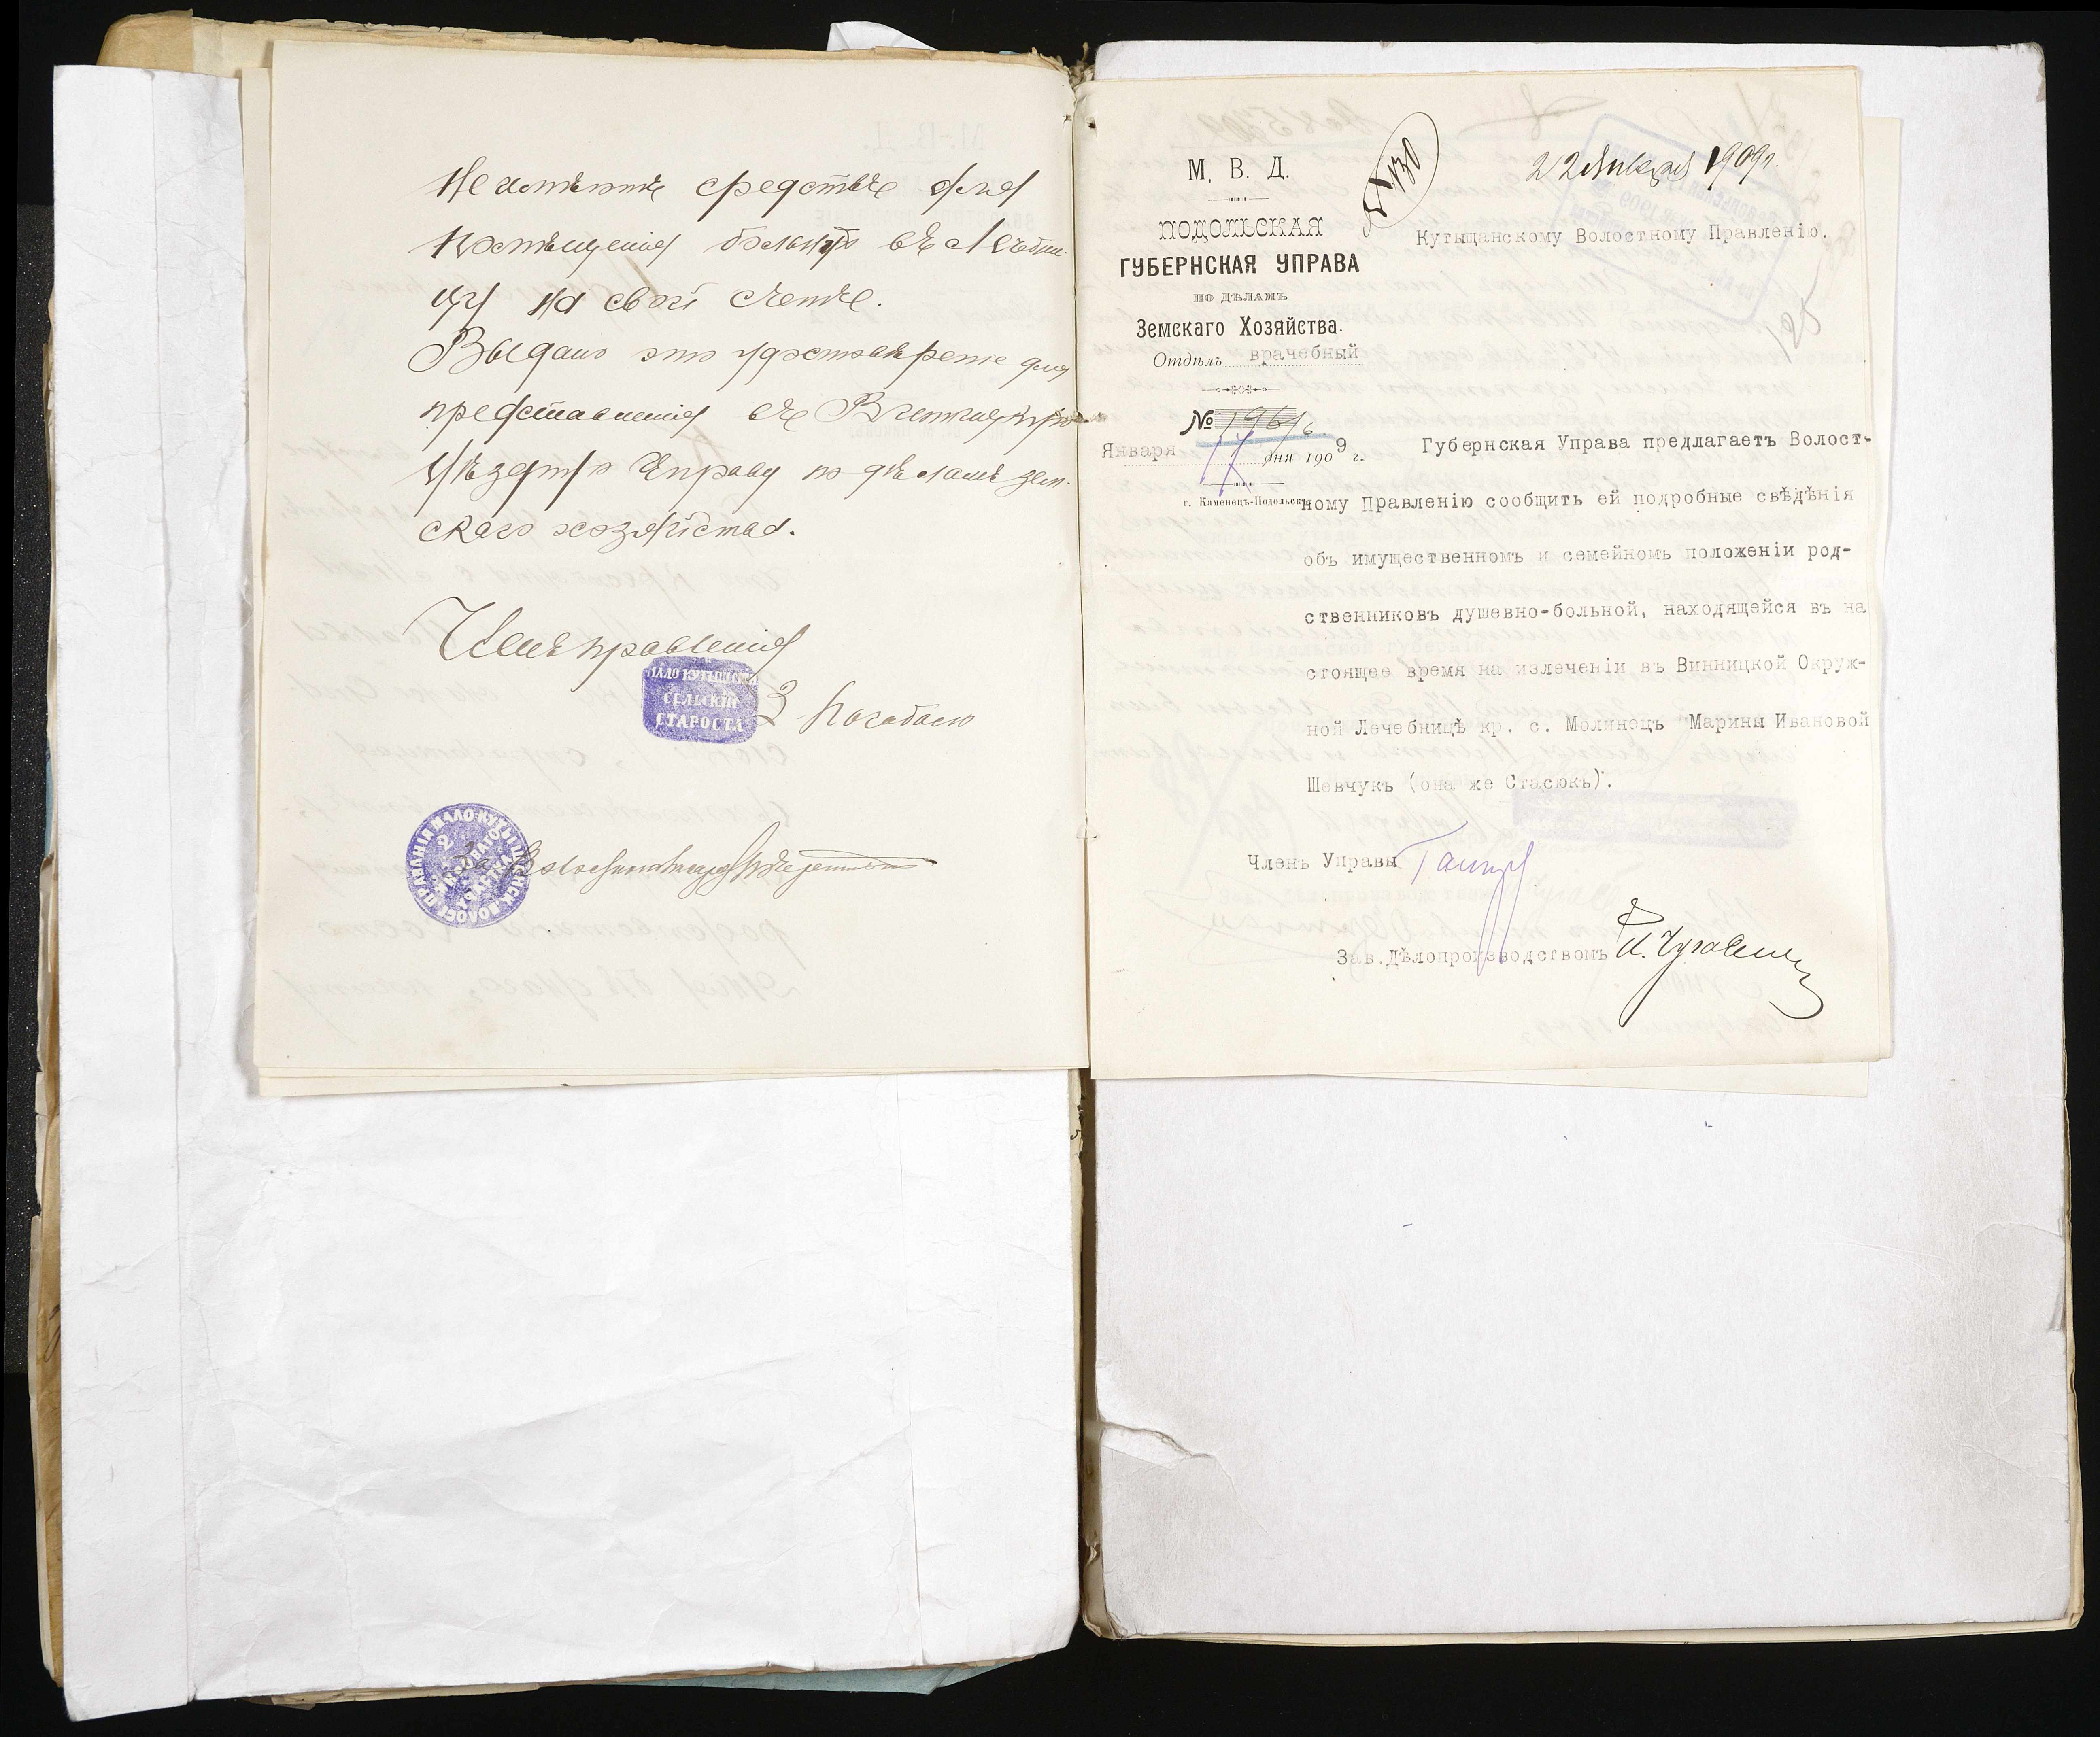 Не имѣютъ средствъ для
помѣщенія больную въ лечебни-
цу на свой счетъ.
Выдано это удостовѣреніе для
представленія въ Винницкую
Уѣздную Управу по дѣламъ зем-
скаго хозяйства.
Членъ правленія
МАЛО КУТЫЩСКІЙ
СЕЛЬСКІЙ
СТАРОСТА
За
М. В. Д.
ПОДОЛЬСКАЯ
ГУБЕРНСКАЯ УПРАВА
ПО ДѢЛАМЪ
Земскаго Хозяйства.
Отдѣлъ врачебный
№ 1961/6
Января 17 дня 1909 г.
г. Каменецъ-Подольскъ
130
22 Января 1909 г.
Кутыщанскому Волостному Правленію.
125
Губернская Управа предлагаетъ Волост-
ному Правленію сообщить ей подробные свѣдѣнія
объ имущественномъ и семейномъ положеніи род-
ственниковъ душевно-больной, находящейся въ на
стоящее время на излеченіи въ Винницкой Окруж-
ной Лечебницѣ кр. с. Молинецъ Марины Ивановой
Шевчукъ (она же Стасюкъ).
Членъ Управы
Зав. Дѣлопроизводствомъ